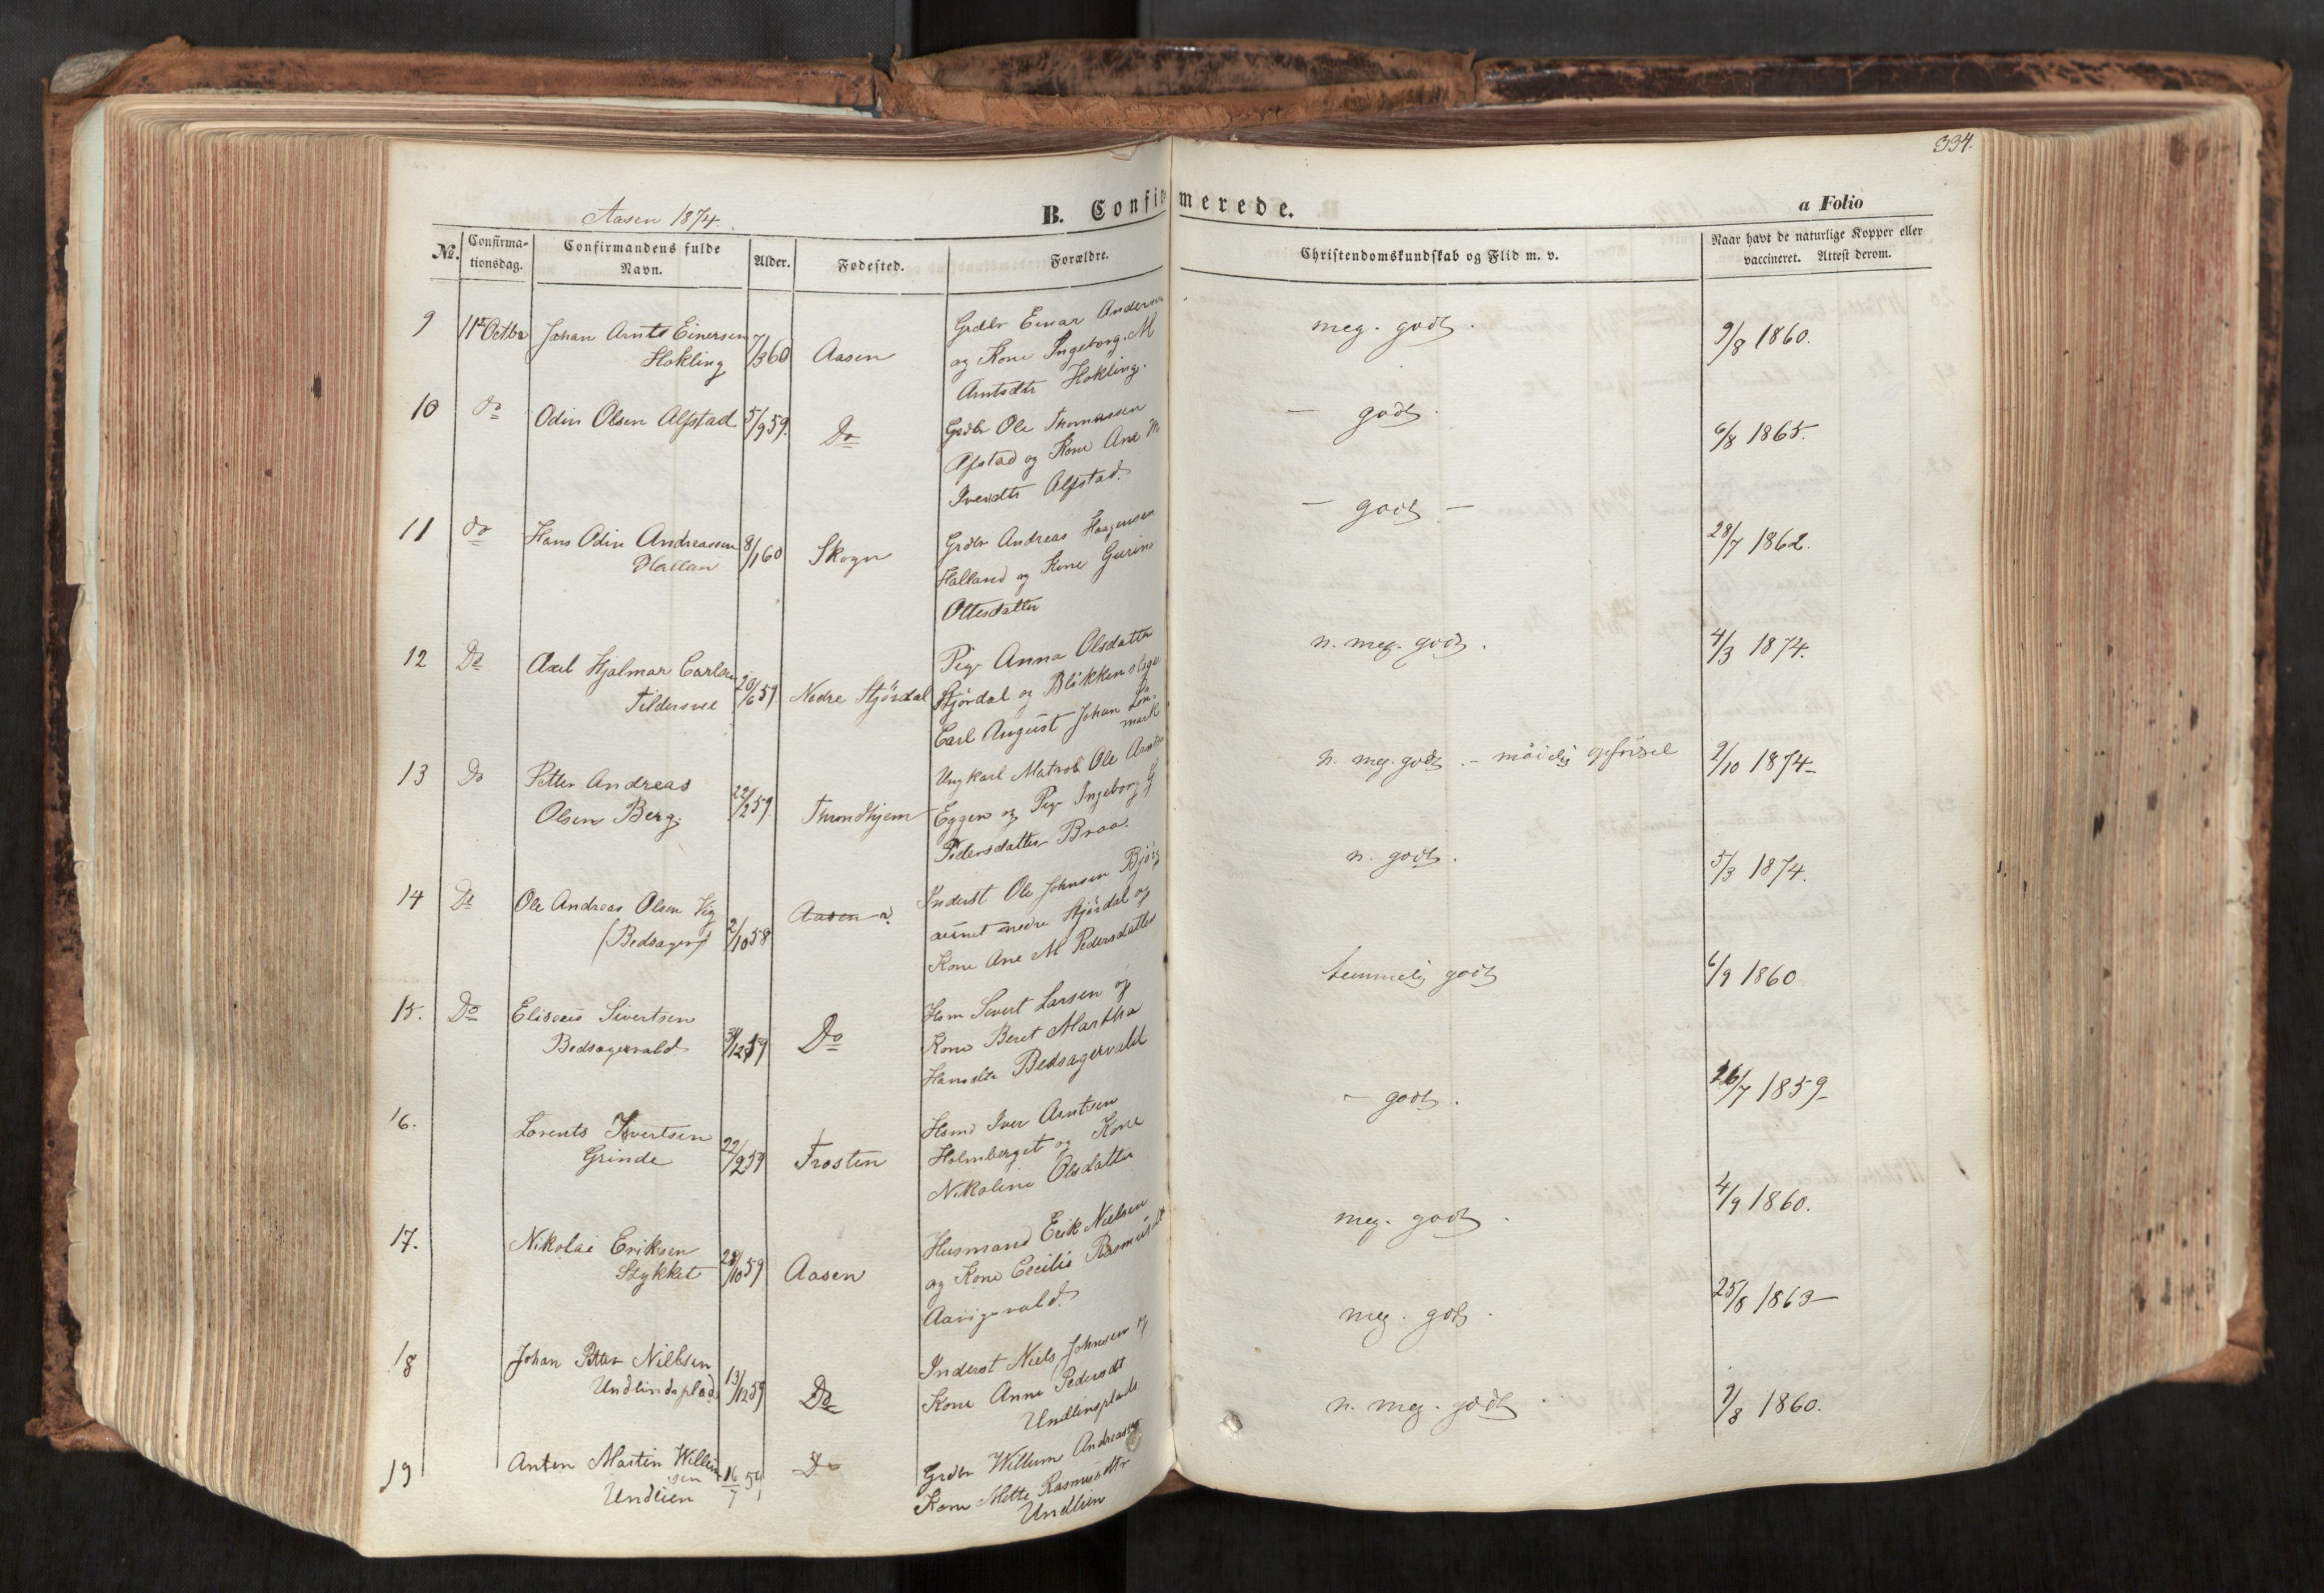 334.
Aasen 1874.
B. Confirmerede.
a Folio
No.
Confirma-
tionsdag.
Confirmandens fulde
Navn.
Alder.
Fødested.
Forældre.
Christendomskundskab og Flid m. v.
Naar havt de naturlige Kopper eller
vaccineret. Attest derom.
9 11te Octbr Johan Arnts Einersen 7/3 60 Aasen Grdbr Einar Andersen meg. godt. 9/8 1860.
Hokling og Kone Ingeborg. M
Arntsdtr Hokling.
10 do Odin Olsen Alfstad 5/9 59. Do Grdbr Ole Thomassen — godt. 6/8 1865.
Afstad og Kone Ane M
Iversdtr Alfstad.
11 do Hans Odin Andreassen 8/1 60 Skogn Grdbr Andreas Haagensen — godt — 28/7 1862.
Hallan Halland og Kone Gurine
Ottesdatter
12 Do Axel Hjalmar Carlsen 20/6 59 Nedre Stjørdal Pige Anna Olsdatter n. meg. godt. 4/3 1874.
Stjørdal og Blikkenslager
Carl August Johan Lön-
mark
13 Do Petter Andreas 22/2 59. Throndhjem Ungkarl Matros Ole Arnts n. meg. godt. — 9/10 1874—
Olsen Berg. Eggen og Pige Ingeborg G
Pedersdatter Braa.
14 Do Ole Andreas Olsen Vig 2/10 58 Aasen Inderst Ole Johnsen n. godt. 5/3 1874.
(Bedsager) nedre Stjørdal og
Kone Ane M Pedersdatter
15. Do Elisæus Sivertsen 31/12 59 Do Hsm Sivert Larsen og temmelig godt 6/9 1860
Bedsagervald Kone Beret Martha
Hansdtr Bedsagervald
16. Lorents Ivertsen 22/2 59 Frosten Hsmd Iver Arntsen — godt. 26/7 1859—
Grinde Holmberget og Kone
Nikoline Olsdatter
17. Nikolai Eriksen 28/10 59 Aasen Husmand Erik Nielsen meg. godt. 4/9 1860.
Stykket og Kone Cecilie Rasmusdt
18 Johan Petter Nilssen 13/12 59 Do Inderst Niels Johnsen og meg. godt. 25/8 1863—
Undlindsplads Kone Anne Pedersdt
Undlinsplads
19 Anton Martin Willum 16/7 59 Do Grdbr Willum Andreassen n. meg. godt. 9/8 1860.
sen Kone Mette Rasmusdtr
Undlien Undlien